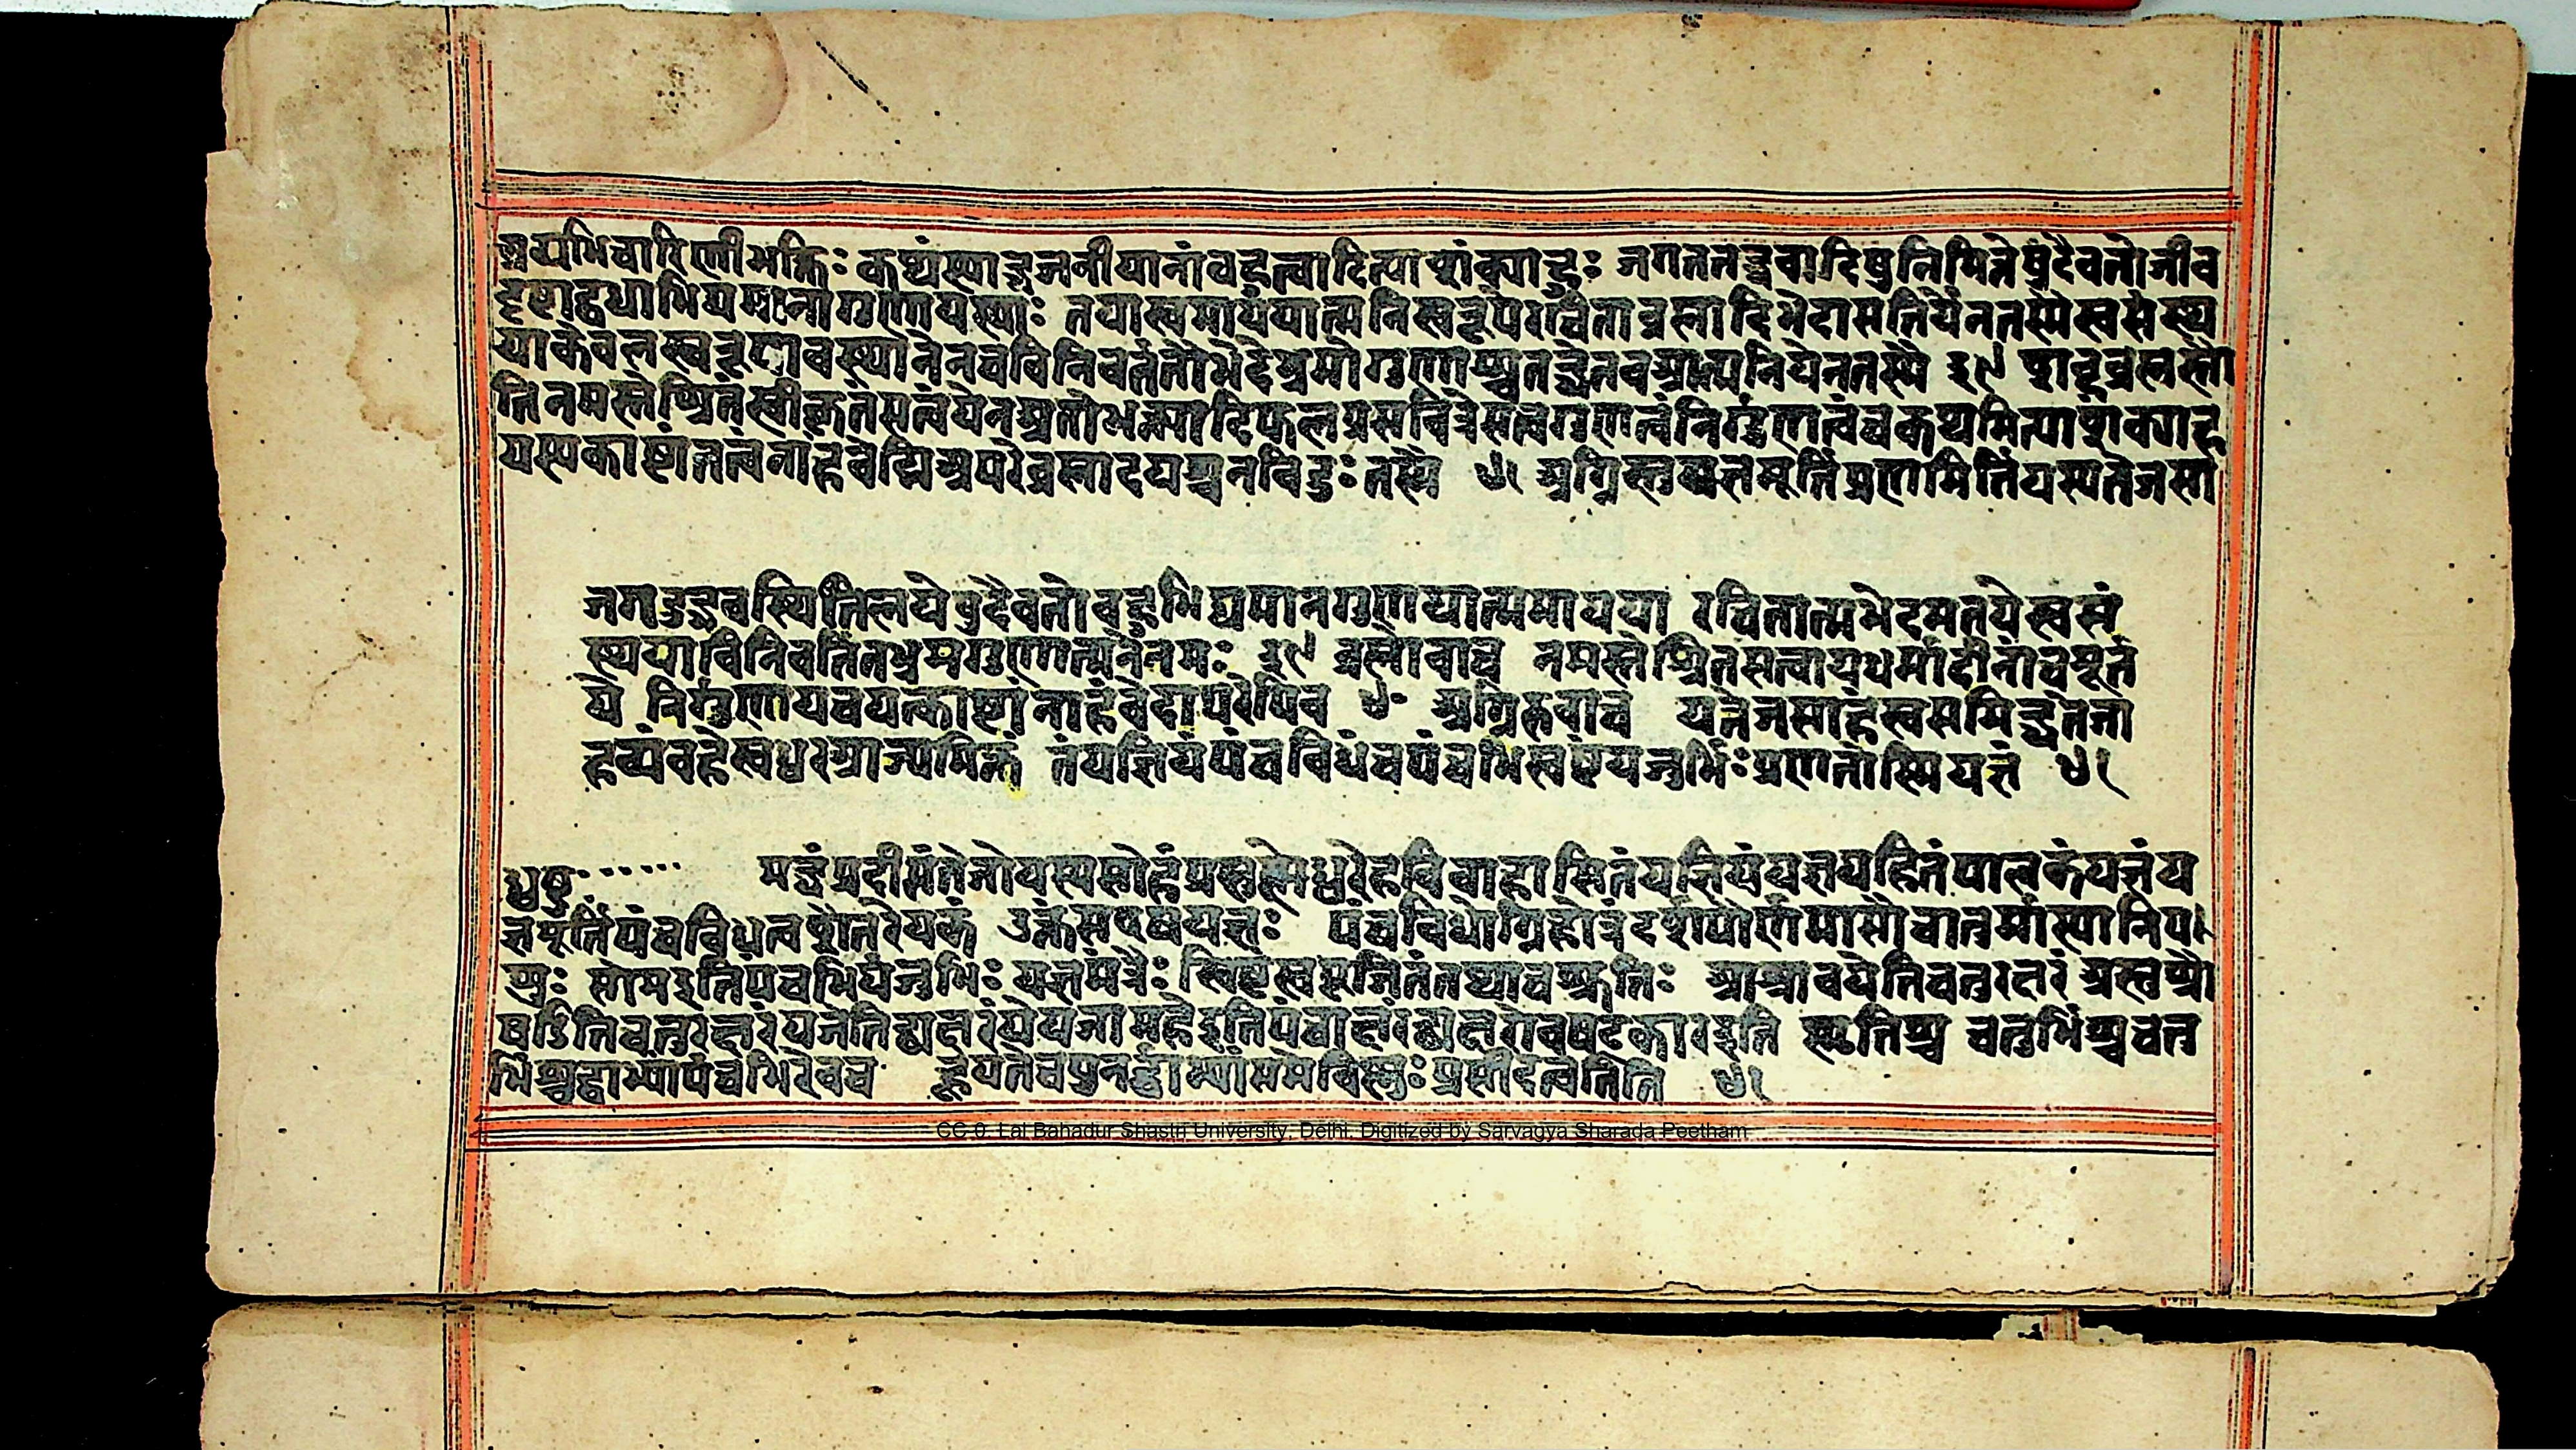 श्रव्यभिचारिणीभक्तिः कथंस्याद्भजनीयानांबहुत्वादित्याशंक्याहुः जगततद्भवादिषुनिमित्तेषुदैवतोजीव
दृष्टाद्वधाभिद्यमानोगुणोयस्याः तयास्वमाययात्मनिस्वरूपेरचिताब्रह्मादिभेदामतिर्येनतस्मैस्वसंस्थ
याकेवलस्वरूपावस्थानेनचविनिवर्तितोभेदेभ्रमोगुणाश्चतद्धेतवआत्मनियेनतस्मै ३९ शब्दब्रह्मस्तौ
तिनमस्तेश्रितंस्वीकृतंसत्वंयेनअतोधर्मादिफलप्रसवित्रेसत्वगुणत्वंनिर्गुणत्वंचकथमित्याशंक्याह
यस्यकाष्ठांतत्वंनाहंवेद्मिअपरेब्रह्मादयश्चनविदुः तस्मै ४॰ अग्निस्तुयज्ञमूर्तिंप्रणमितियस्यतेजसा
जगदुद्भवस्थितिलयेषुदैवतोबहुभिद्यमानगुणयात्ममायया रचितात्मभेदमतयेस्वसं
स्थयाविनिवर्तितभ्रमगुणात्मनेनमः ३९ ब्रह्मोवाच नमस्तेश्रितसत्वायधर्मादीनांचसूत
ये निर्गुणायचयत्काष्ठांनाहंवेदापरेपिच ४॰ अग्निरुवाच यत्तेजसाहंसुसमिद्धतेजा
हव्यंवहेस्वध्वरआज्यसिक्तं तंयज्ञियंपंचविधंचपंचभिःस्विष्टंयजुर्भिःप्रणतोस्मियज्ञं ४१
धृष्ट॰ समिद्धंप्रदीप्तंतेजोयस्यसोहंप्रशस्तेध्वरेहविर्वहामितंयज्ञियंयज्ञायहितंपालकंयज्ञंय
ज्ञमूर्तिंपंचविधत्वंशौतरेयकं उक्तंसएषयज्ञः पंचविधोग्निहोत्रंदर्शपौर्णमासौचातुर्मास्यानिप
शुः सोमइतिपंचभिर्यजुर्भिः यज्ञमंत्रैः स्विष्टंसुपूजितंतथाचश्रुतिः आश्रावयेतिचतुरक्षरं अस्तुश्रौ
षडितिचतुरक्षरंयजेतिद्व्यक्षरंयेयजामहेइतिपंचाक्षरंद्व्यक्षरोवषट्कारइति स्मृतिश्च चतुर्भिश्चचतु
र्भिश्चद्वाभ्यांपंचभिरेवच हूयतेचपुनर्द्वाभ्यांसमेविष्णुःप्रसीदत्वितिति ४१
CC-0. Lal Bahadur Shastri University, Delhi. Digitized by Sarvagya Sharada Peetham